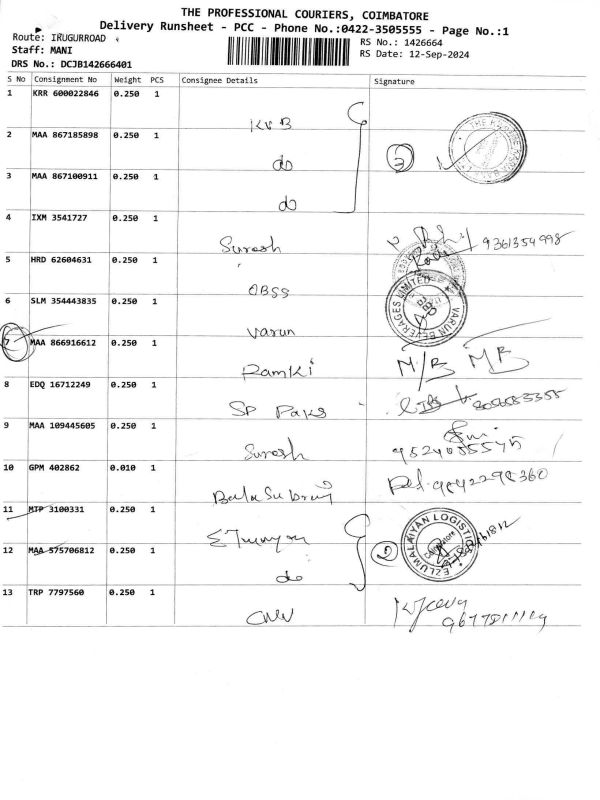 THE PROFESSIONAL COURIERS, COIMBATORE
Delivery Runsheet - PCC - Phone No.:0422-3505555 - Page No.:1
Route: IRUGURROAD
RS No.: 1426664
Staff: MANI
RS Date: 12-Sep-2024
DRS No.: DCJB142666401
S No Consignment No Weight PCS Consignee Details Signature
1 KRR 600022846 0.250 1 KVB
2 MAA 867185898 0.250 1 do 3
3 MAA 867100911 0.250 1 do
4 IXM 3541727 0.250 1 Suresh 9361354998
5 HRD 62604631 0.250 1 OBSS
6 SLM 354443835 0.250 1 Varun VARUN BEVERAGES LIMITED
7 MAA 866916612 0.250 1 Ramki M/B MB
8 EDQ 16712249 0.250 1 SP Paks
9 MAA 109445605 0.250 1 Suresh
10 GPM 402862 0.010 1 9842298360
11 MTP 3100331 0.250 1 EZLUMALAIYAN LOGISTIC
12 MAA 575706812 0.250 1 do 2
13 TRP 7797560 0.250 1